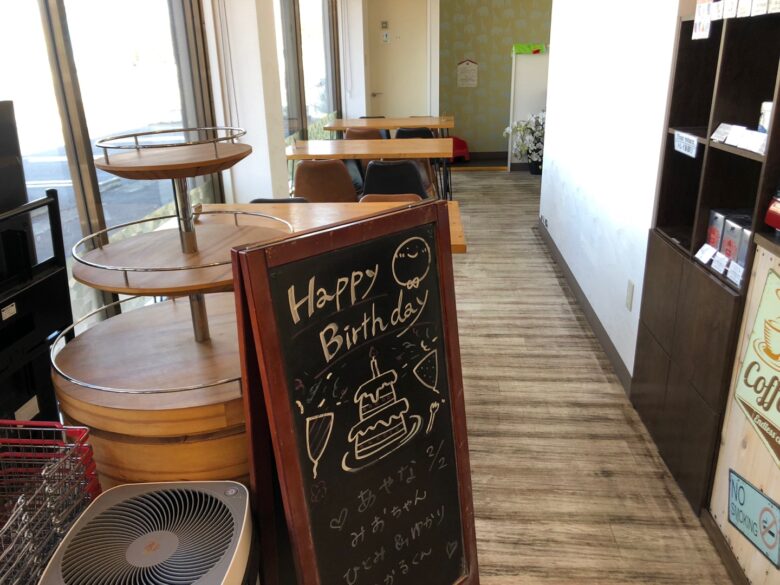 Happy
Birthday
あやな 2/2
みおちゃん
ひとみ &ゆかり
かるくん
Coffee
NO
SMOKING